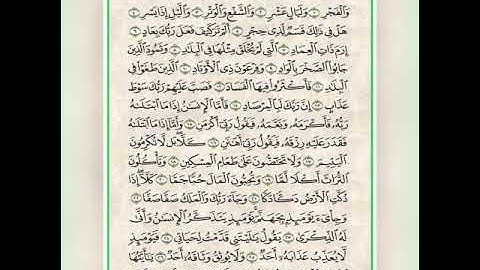 وَالْفَجْرِ ١ وَلَيَالٍ عَشْرٍ ٢ وَالشَّفْعِ وَالْوَتْرِ ٣ وَاللَّيْلِ إِذَا يَسْرِ ٤
هَلْ فِي ذَٰلِكَ قَسَمٌ لِّذِي حِجْرٍ ٥ أَلَمْ تَرَ كَيْفَ فَعَلَ رَبُّكَ بِعَادٍ ٦
إِرَمَ ذَاتِ الْعِمَادِ ٧ الَّتِي لَمْ يُخْلَقْ مِثْلُهَا فِي الْبِلَادِ ٨ وَثَمُودَ الَّذِينَ
جَابُوا الصَّخْرَ بِالْوَادِ ٩ وَفِرْعَوْنَ ذِي الْأَوْتَادِ ١٠ الَّذِينَ طَغَوْا فِي
الْبِلَادِ ١١ فَأَكْثَرُوا فِيهَا الْفَسَادَ ١٢ فَصَبَّ عَلَيْهِمْ رَبُّكَ سَوْطَ
عَذَابٍ ١٣ إِنَّ رَبَّكَ لَبِالْمِرْصَادِ ١٤ فَأَمَّا الْإِنسَانُ إِذَا مَا ابْتَلَاهُ
رَبُّهُ فَأَكْرَمَهُ وَنَعَّمَهُ فَيَقُولُ رَبِّي أَكْرَمَنِ ١٥ وَأَمَّا إِذَا مَا ابْتَلَاهُ
فَقَدَرَ عَلَيْهِ رِزْقَهُ فَيَقُولُ رَبِّي أَهَانَنِ ١٦ كَلَّا بَل لَّا تُكْرِمُونَ
الْيَتِيمَ ١٧ وَلَا تَحَاضُّونَ عَلَىٰ طَعَامِ الْمِسْكِينِ ١٨ وَتَأْكُلُونَ
التُّرَاثَ أَكْلًا لَّمًّا ١٩ وَتُحِبُّونَ الْمَالَ حُبًّا جَمًّا ٢٠ كَلَّا إِذَا
دُكَّتِ الْأَرْضُ دَكًّا دَكًّا ٢١ وَجَاءَ رَبُّكَ وَالْمَلَكُ صَفًّا صَفًّا ٢٢
وَجِيءَ يَوْمَئِذٍ بِجَهَنَّمَ يَوْمَئِذٍ يَتَذَكَّرُ الْإِنسَانُ وَأَنَّىٰ
لَهُ الذِّكْرَىٰ ٢٣ يَقُولُ يَا لَيْتَنِي قَدَّمْتُ لِحَيَاتِي ٢٤ فَيَوْمَئِذٍ
لَّا يُعَذِّبُ عَذَابَهُ أَحَدٌ ٢٥ وَلَا يُوثِقُ وَثَاقَهُ أَحَدٌ ٢٦ يَا أَيَّتُهَا